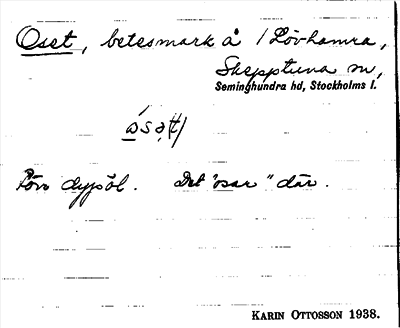 Oset, betesmark å Lövhamra,
Skepptuna sn,
Seminghundra hd, Stockholms l.
Förr dypöl. Det "osar" där.
KARIN OTTOSSON 1938.